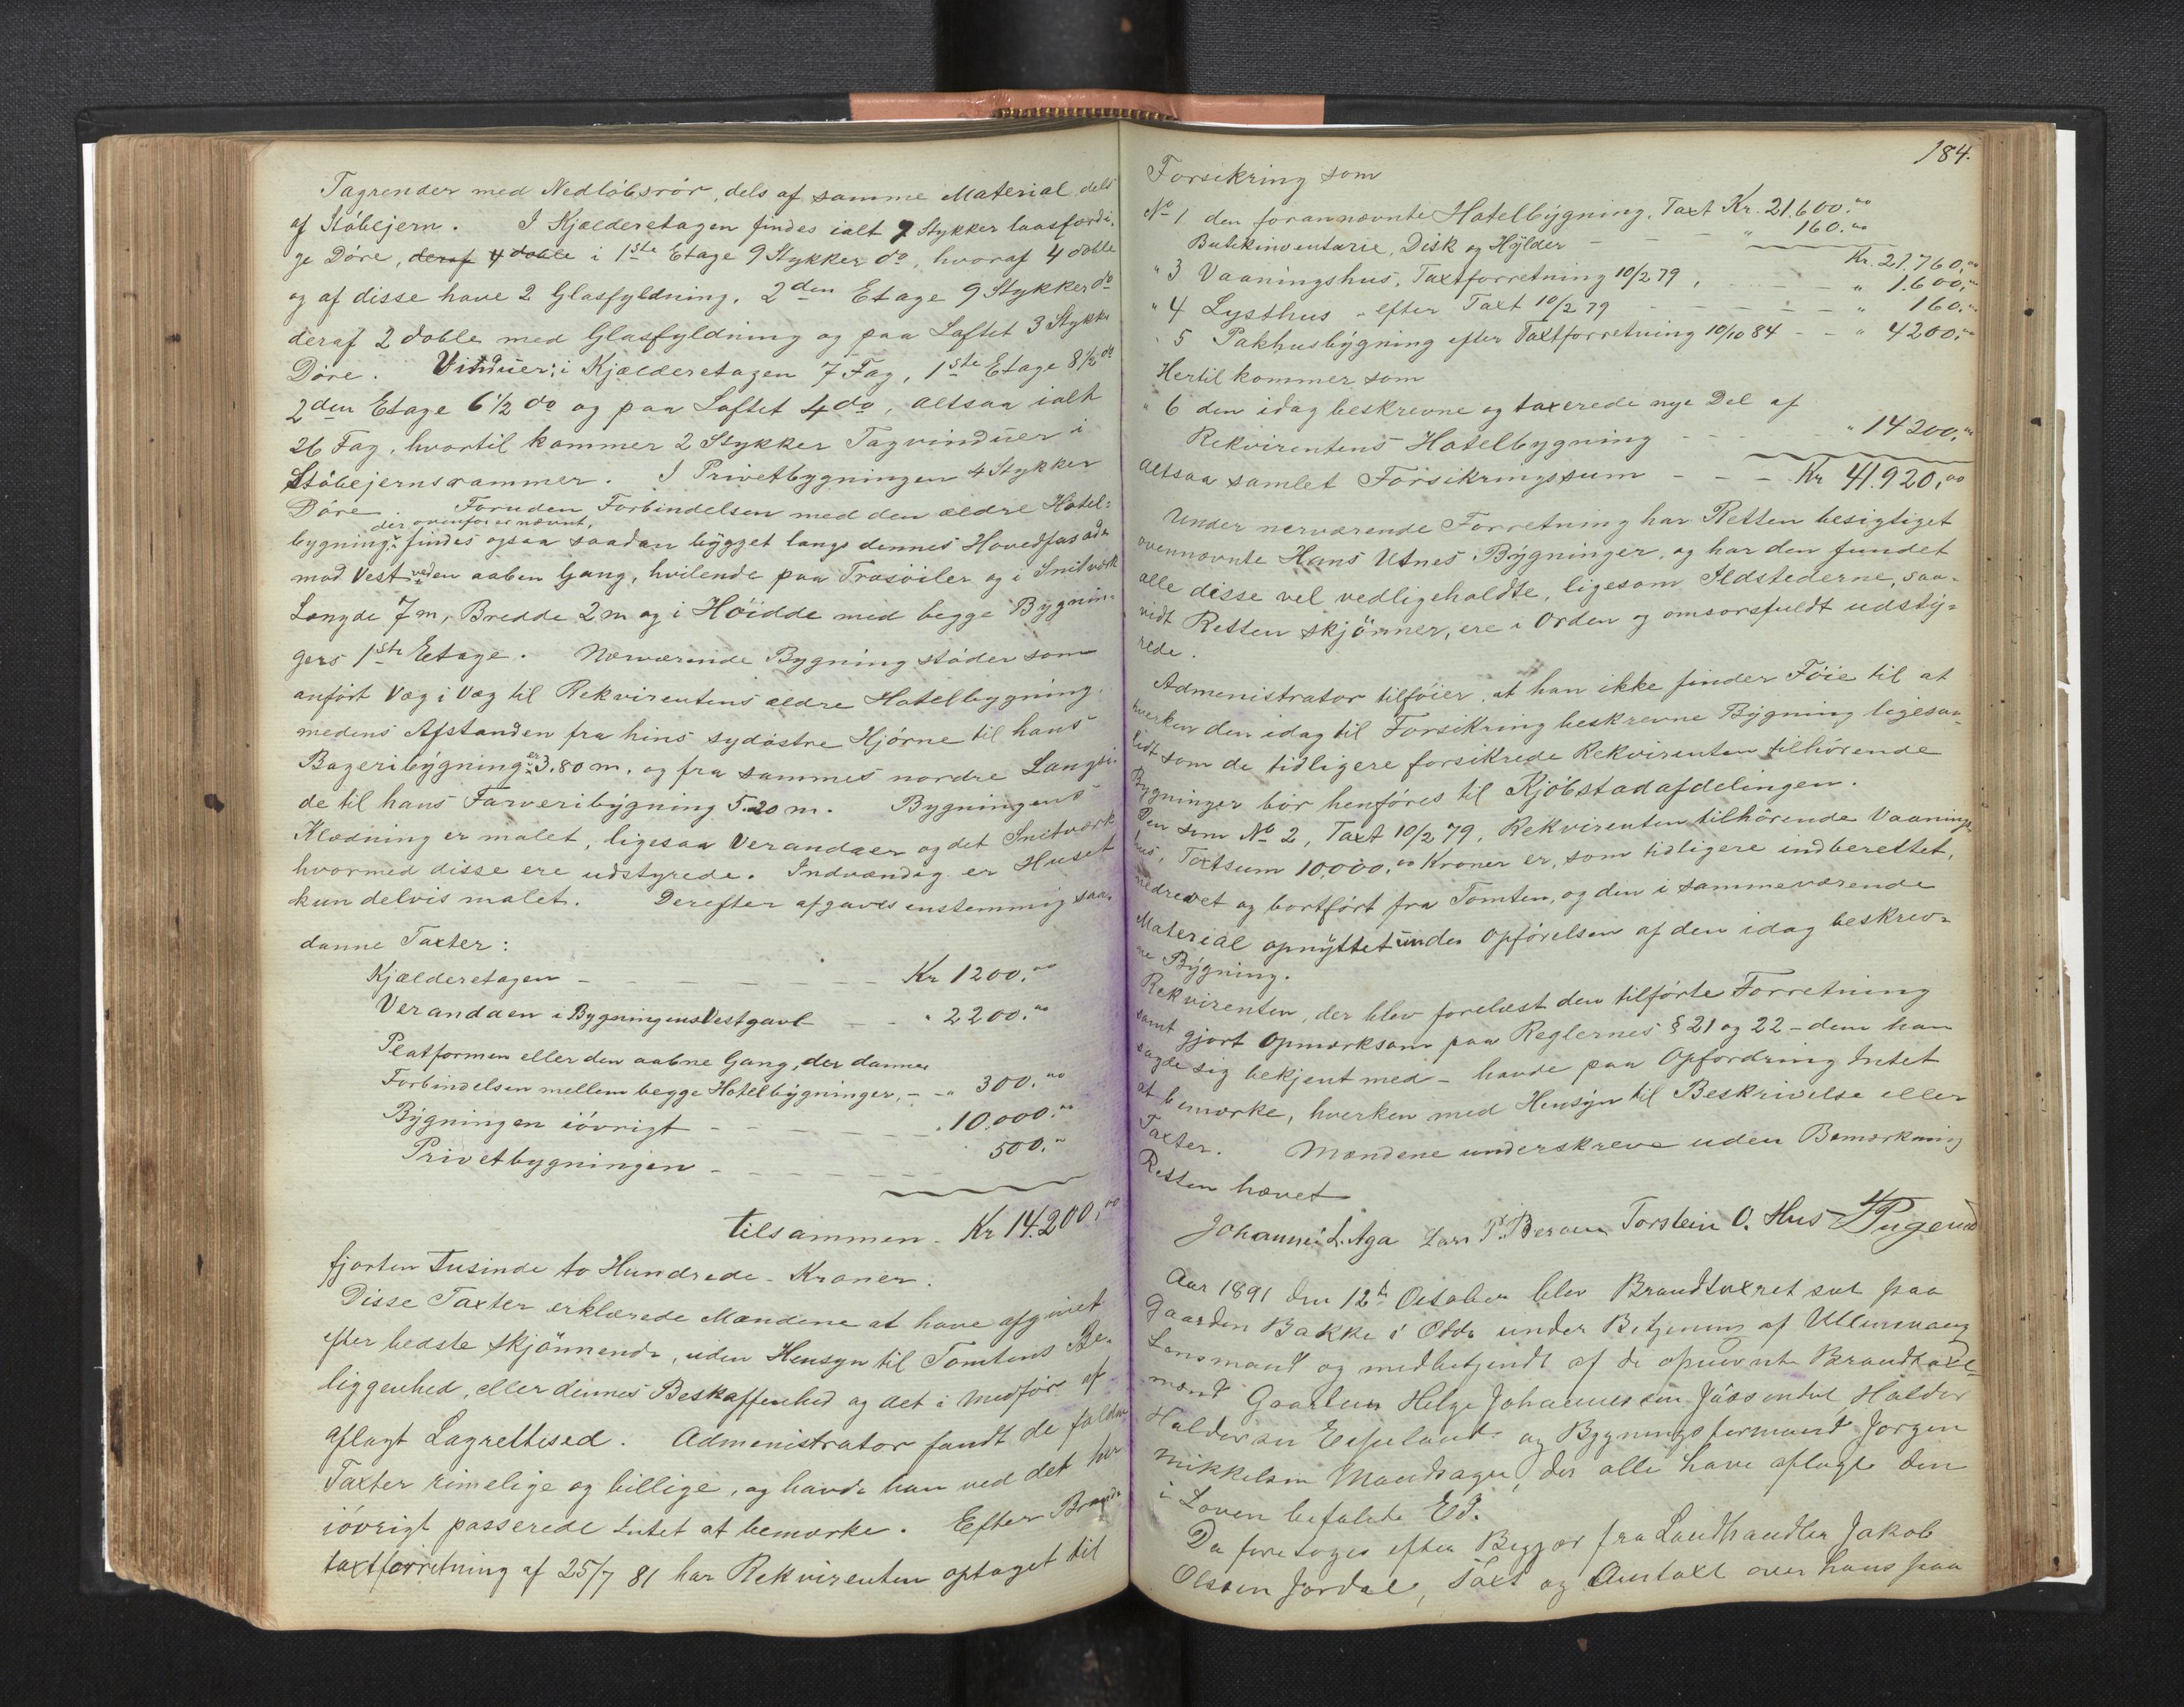 Tagrender med Nedløbsrør, dels af samme Material dels
af Støbejern. I Kjælderetagen findes ialt 7 Stykker laasfærdi-
ge Døre, deraf 4 doble i 1ste Etage 9 Stykker do, hvoraf 4 doble
og af disse have 2 Glasfyldning. 2den Etage 9 Stykker do
deraf 2 doble med Glasfyldning og paa Loftet 3 Stykke
Døre. Vinduer: i Kjælderetagen 7 Fag, 1ste Etage 8½ do
2den Etage 6½ do og paa Loftet 4 do, altsaa ialt
26 Fag, hvortil kommer 2 Stykker Tagvinduer i
Støbejernsrammer. I Privetbygningen 4 Stykker
Døre. Foruden Forbindelsen med den ældre Hotel-
der ovenfor er nævnt,
bygning findes ogsaa saadan bygget langs dennes Hovedfasade
mod Vest ved en aaben Gang, hvilende paa Træsøiler og i Snitværk
Længde 7 m, Bredde 2 m og i Høidde med begge Bygnin-
gers 1ste Etage. Nærværende Bygning støder som
anført Væg i Væg til Rekvirentens ældre Hotelbygning,
medens Afstanden fra hins sydøstre Hjørne til hans
Bageribygning er 3.80 m. og fra sammes nordre Langsi-
de til hans Farveribygning 5.20 m. Bygningens
Klædning er malet, ligesaa Verandaer og det Snitværk
hvormed disse ere udstyrede. Indvændig er Huset
kun delvis malet. Derefter afgaves enstemmig saa-
danne Taxter:
Kjælderetagen - - - - - Kr 1200.00
Verandaen i Bygningens Vestgavl - - " 2200.00
Platformen eller den aabne Gang, der danner
Forbindelsen mellem begge Hotelbygninger, - - " 300.00
Bygningen iøvrigt - - - - - " 10.000.00
Privetbygningen - - - - - 500.00
tilsammen - Kr 14.200,00
fjorten Tusinde to Hundrede - Kroner.
Disse Taxter erklærede Mændene at have afgivet
efter bedste Skjønnende, uden Hensyn til Tomtens Be-
liggenhed, eller dennes Beskaffenhed og det i Medfør af
aflagt Lagrettesed. Administrator fandt de faldne
Taxter rimelige og billige, og havde han ved det her
iøvrigt passerede Intet at bemærke. Efter Brand-
taxtforretning af 25/7 81 har Rekvirenten optaget til
184.
Forsikring som
No 1 den forannævnte Hotelbygning, Taxt Kr. 21.600.00
Butikinventarie, Disk og Hylder - - - " 160.00
Kr. 21.760,00
" 3 Vaaningshus, Taxtforretning 10/2 79, - - - " 1.600,00
" 4 Lysthus - efter Taxt 10/2 79 - - - - " 160,00
" 5 Pakhusbygning efter Taxtforretning 10/10 84 - - " 4200,00
Hertil kommer som
" 6 den idag beskrevne og taxerede nye Del af
Rekvirentens Hotelbygning - - - " 14200,00
altsaa samlet Forsikringssum - - - Kr 41.920,00
Under nærværende Forretning har Retten besigtiget
ovennævnte Hans Utnes Bygninger, og har den fundet
alle disse vel vedligeholdte, ligesom Ildstederne, saa-
vidt Retten skjønner, ere i Orden og omsorsfuldt udsty-
rede.
Admenistrator tilføier, at han ikke finder Føie til at
hverken den idag til Forsikring beskrevne Bygning ligesaa-
lidt som de tidligere forsikrede Rekvirenten tilhørende
Bygninger bør henføres til Kjøbstadafdelingen.
Den som No 2, Taxt 10/2 79, Rekvirenten tilhørende Vaanings-
hus, Taxtsum 10.000.00 Kroner er, som tidligere indberettet,
nedrevet og bortført fra Tomten, og den i samme værende
Material opnyttet under Opførelsen af den idag beskrev-
ne Bygning.
Rekvirenten, der blev forelæst den tilførte Forretning
samt gjort Opmærksom paa Reglernes § 21 og 22 - dem han
sagde sig bekjent med - havde paa Opfordring Intet
at bemærke, hverken med Hensyn til Beskrivelse eller
Taxter. Mændene underskreve uden Bemærkning
Retten hævet
Johannes L. Aga Lars P. Torstein O. Hus
Aar 1891 den 12te October blev Brandtaxret sat paa
Gaarden Bakke i Odda under Betjening af Ullensvang
Lensmand og medbetjendt af de opnævnte Brandtaxt-
mænd Gaardm Helge Johannessen Jøsendal, Haldor
Haldorsen Eispeland og Bygningsformand Jørgen
Mikkelsen Mandsager, der alle have aflagt den
i Loven befalede Ed.
Da foretoges efter Begjær fra Landhandler Jakob
Olsen Jordal, Taxt og Omtaxt over hans paa